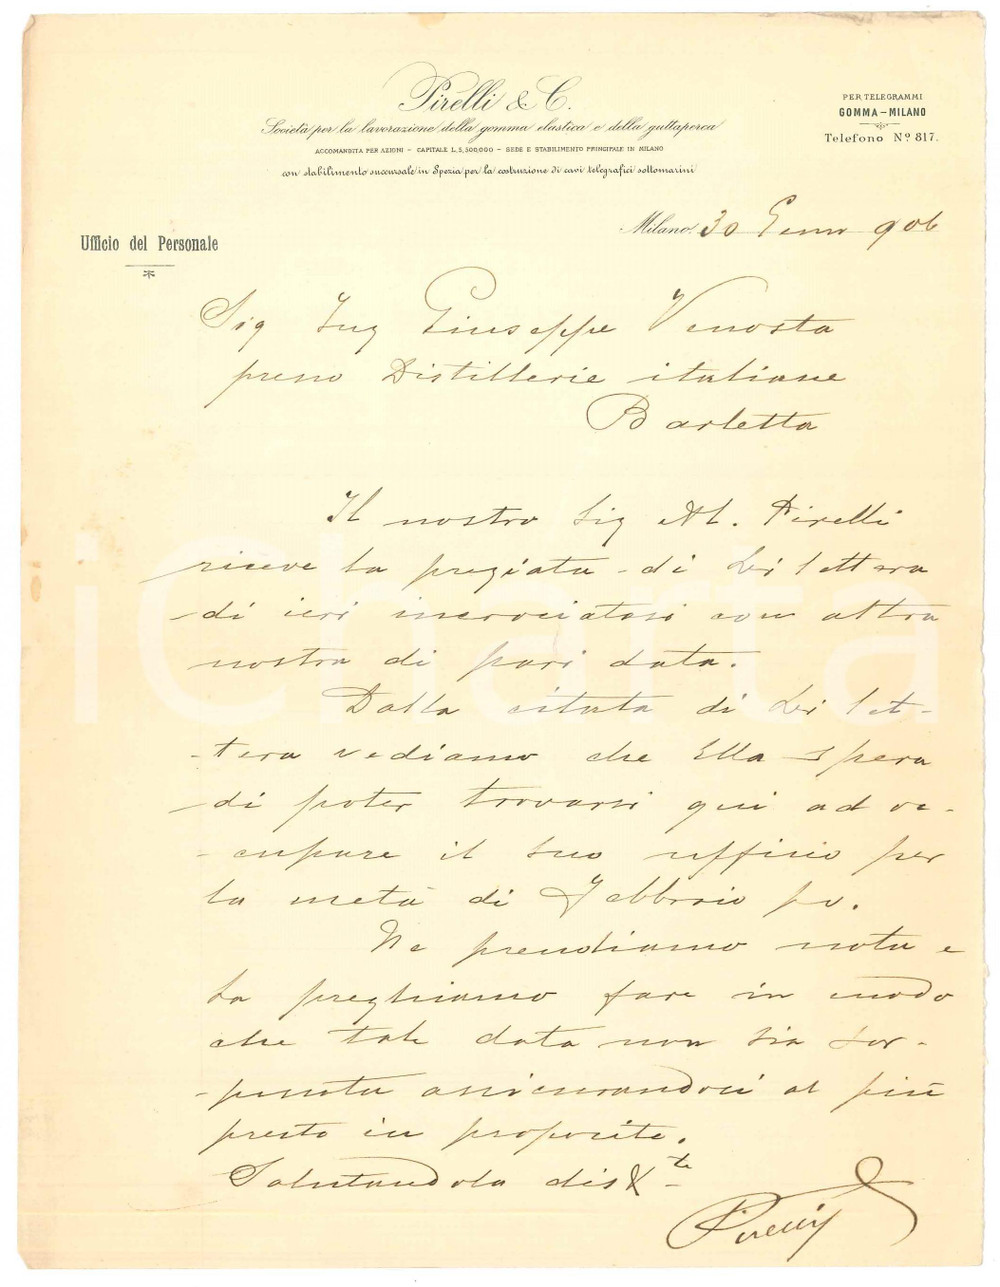 Pirelli & C.
Società per la lavorazione della gomma elastica e della guttaperca
ACCOMANDITA PER AZIONI - CAPITALE L. 5,500,000 - SEDE E STABILIMENTO PRINCIPALE IN MILANO
con stabilimento succursale in Spezia per la costruzione di cavi telegrafici sottomarini
PER TELEGRAMMI
GOMMA-MILANO
Telefono Nº 817.
Ufficio del Personale
Milano, 30 Genn 906
Sig Ing Giuseppe Venosta
presso Distillerie italiane
Barletta
Il nostro Sig Al. Pirelli
riceve la pregiata di Lei lettera
di ieri incrociatasi con altra
nostra di pari data.
Dalla citata di Lei let-
-tera vediamo che Ella spera
di poter trovarsi qui ad oc-
-cupare il suo ufficio per
la metà di Febbraio pv.
Ne prendiamo nota e
La preghiamo fare in modo
che tale data non sia sor-
-passata assicurandoci al più
presto in proposito.
Salutandola dis te
Pirelli
iCharta